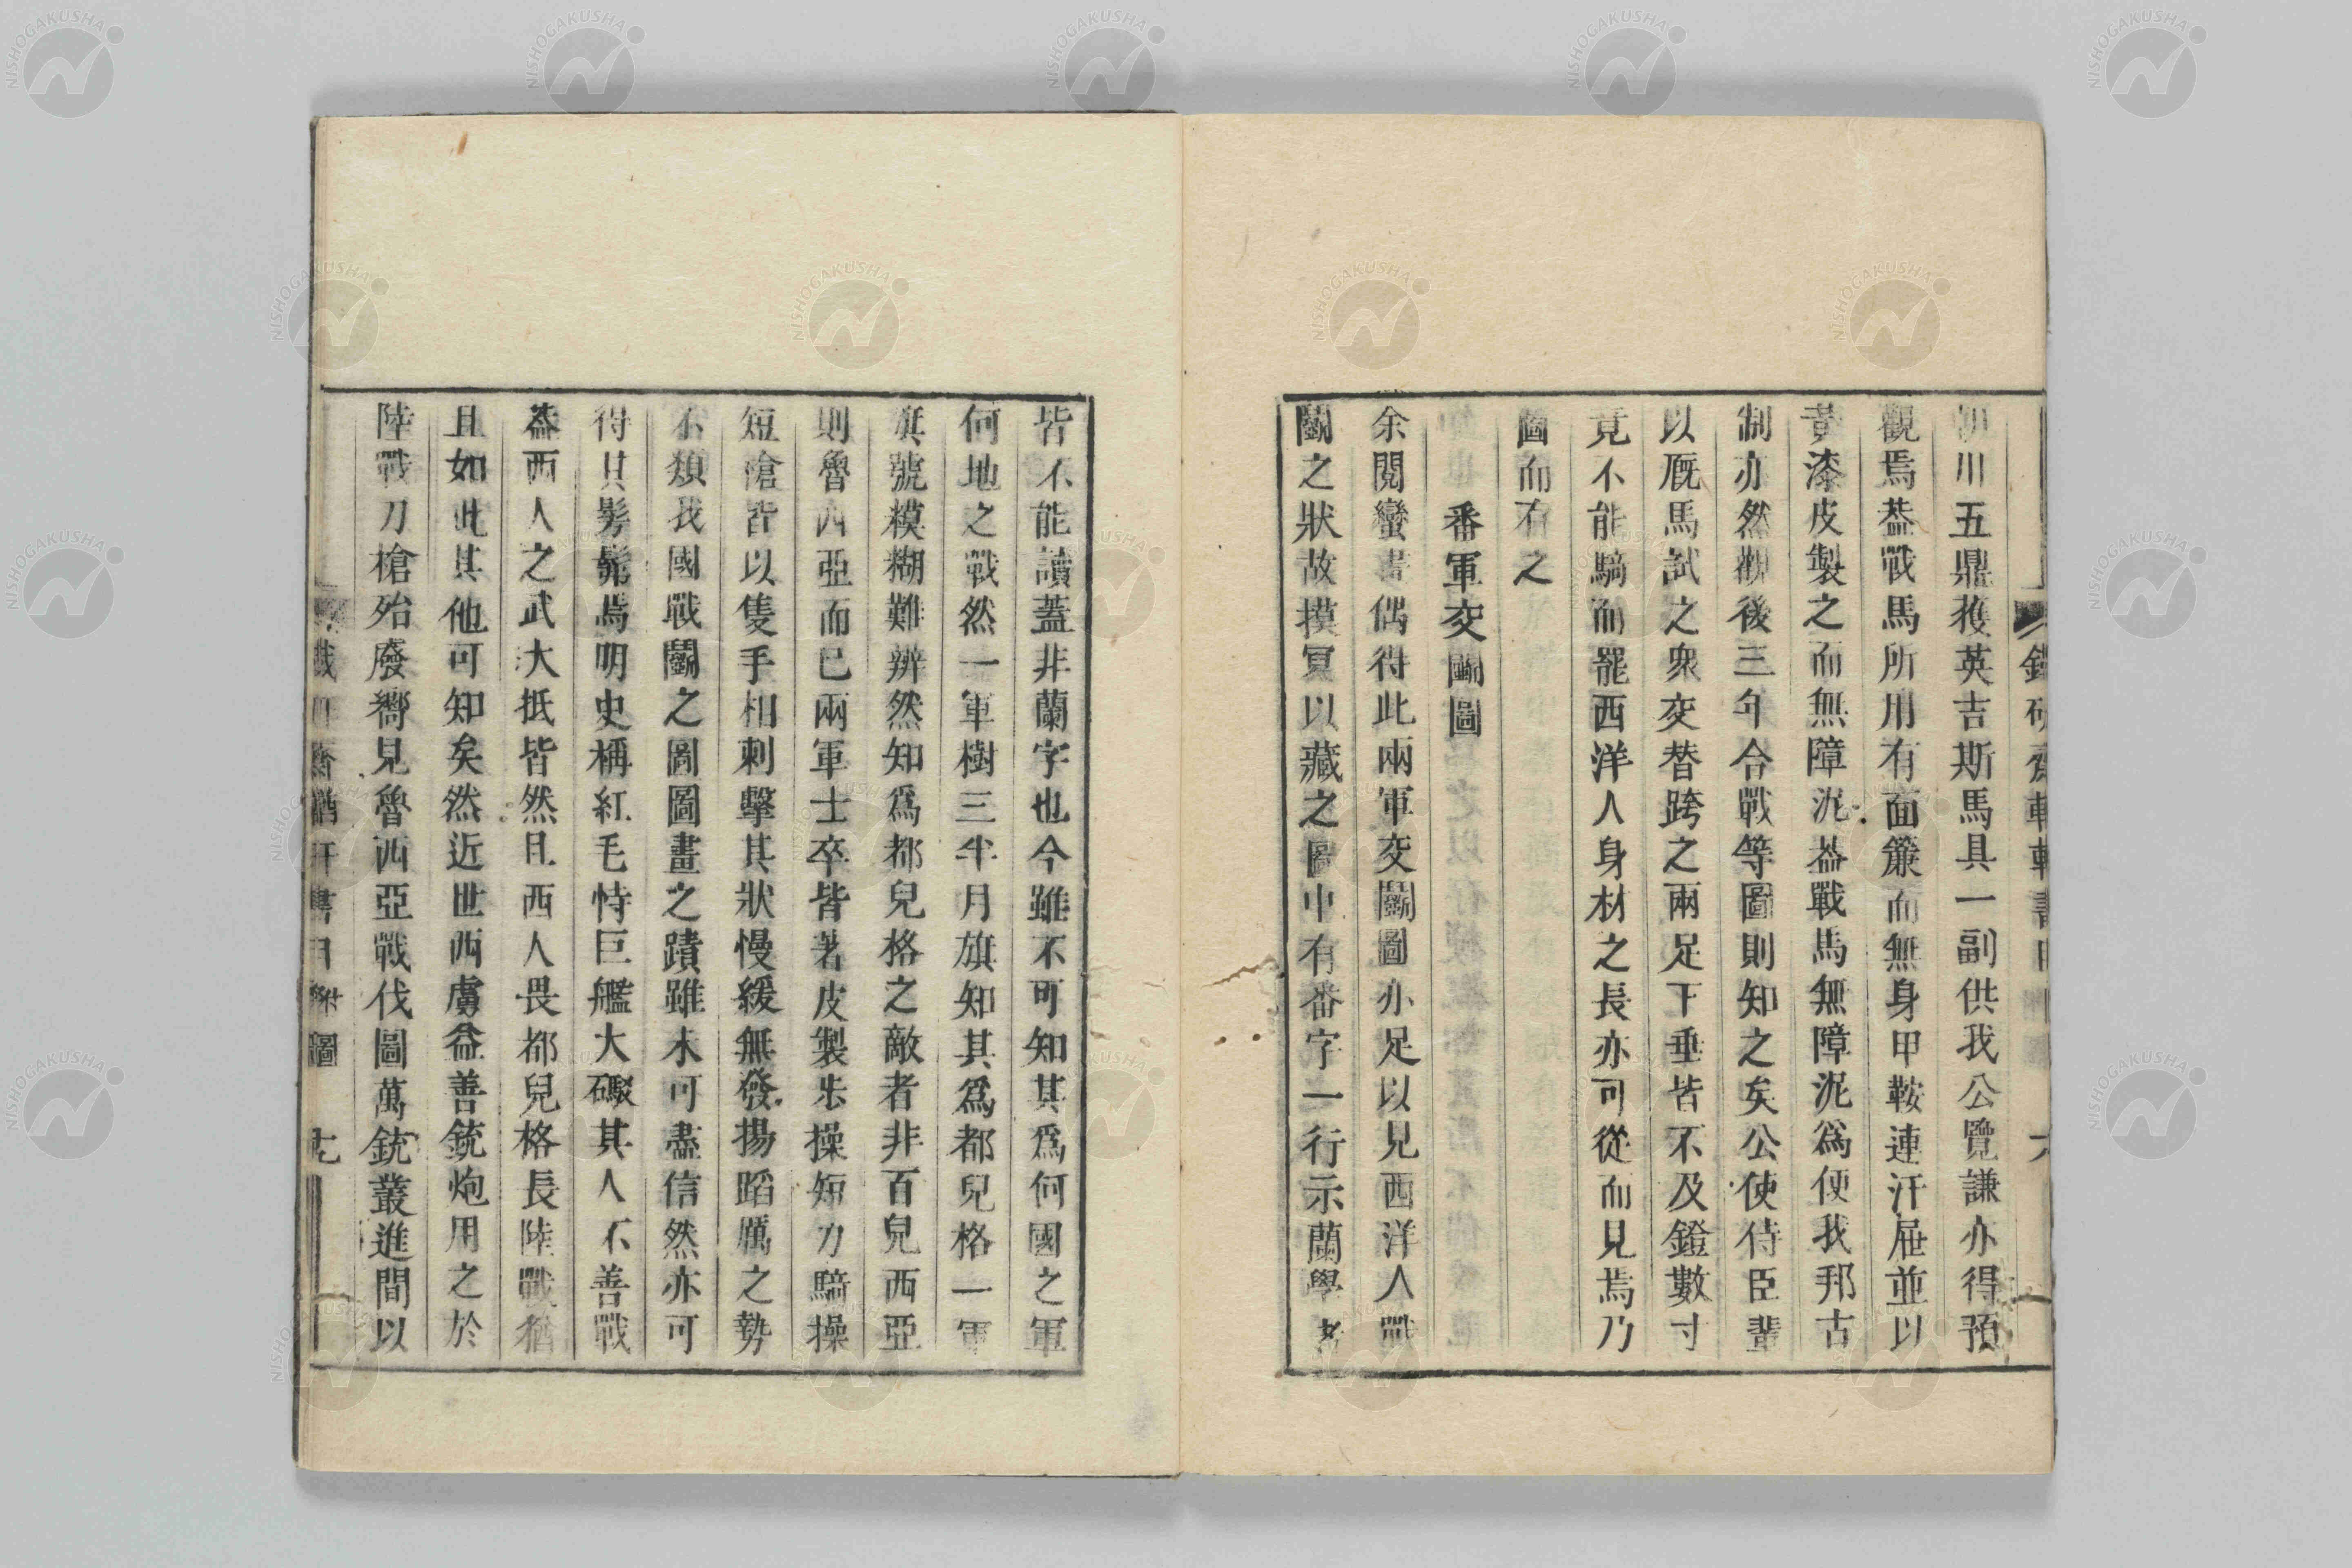 朝川五鼎獲英吉斯馬具一副供我公覽謙亦得預
觀焉葢戰馬所用有面簾而無身甲鞍連汗屜並以
黃漆皮製之而無障泥葢戰馬無障泥爲便我邦古
制亦然觀後三年合戰等圖則知之矣公使侍臣輩
以厩馬試之衆交替跨之兩足下垂皆不及鐙數寸
竟不能騎而罷西洋人身材之長亦可從而見焉乃
圖而存之
番軍交鬭圖
余閱蠻書偶得此兩軍交鬭圖亦足以見西洋人戰
鬭之狀故摸冩以藏之圖中有番字一行示蘭學者
皆不能讀蓋非蘭字也今雖不可知其爲何國之軍
何地之戰然一軍樹三半月旗知其爲都兒格一軍
旗號糢糊難辨然知爲都兒格之敵者非百兒西亞
則魯西亞而已兩軍士卒皆著皮製步操短刀騎操
短槍皆以隻手相刺擊其狀慢緩無發揚蹈厲之勢
不類我國戰鬭之圖圖畫之蹟雖未可盡信然亦可
得其髣髴焉明史稱紅毛恃巨艦大礮其人不善戰
葢西人之武大抵皆然且西人畏都兒格長陸戰猶
且如此其他可知矣然近世西虜益善銃炮用之於
陸戰刀槍殆廢嚮見魯西亞戰伐圖萬銃叢進間以
七